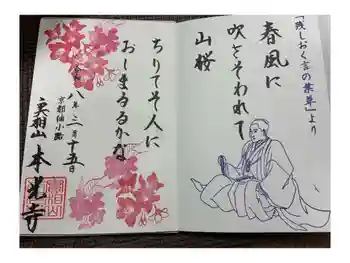 「残しおく言の葉草」より
春風に
吹さそわれて
山桜
ちりてそ人に
おしまるるかな
令和八年三月十五日
京都油小路
実相山 本光寺